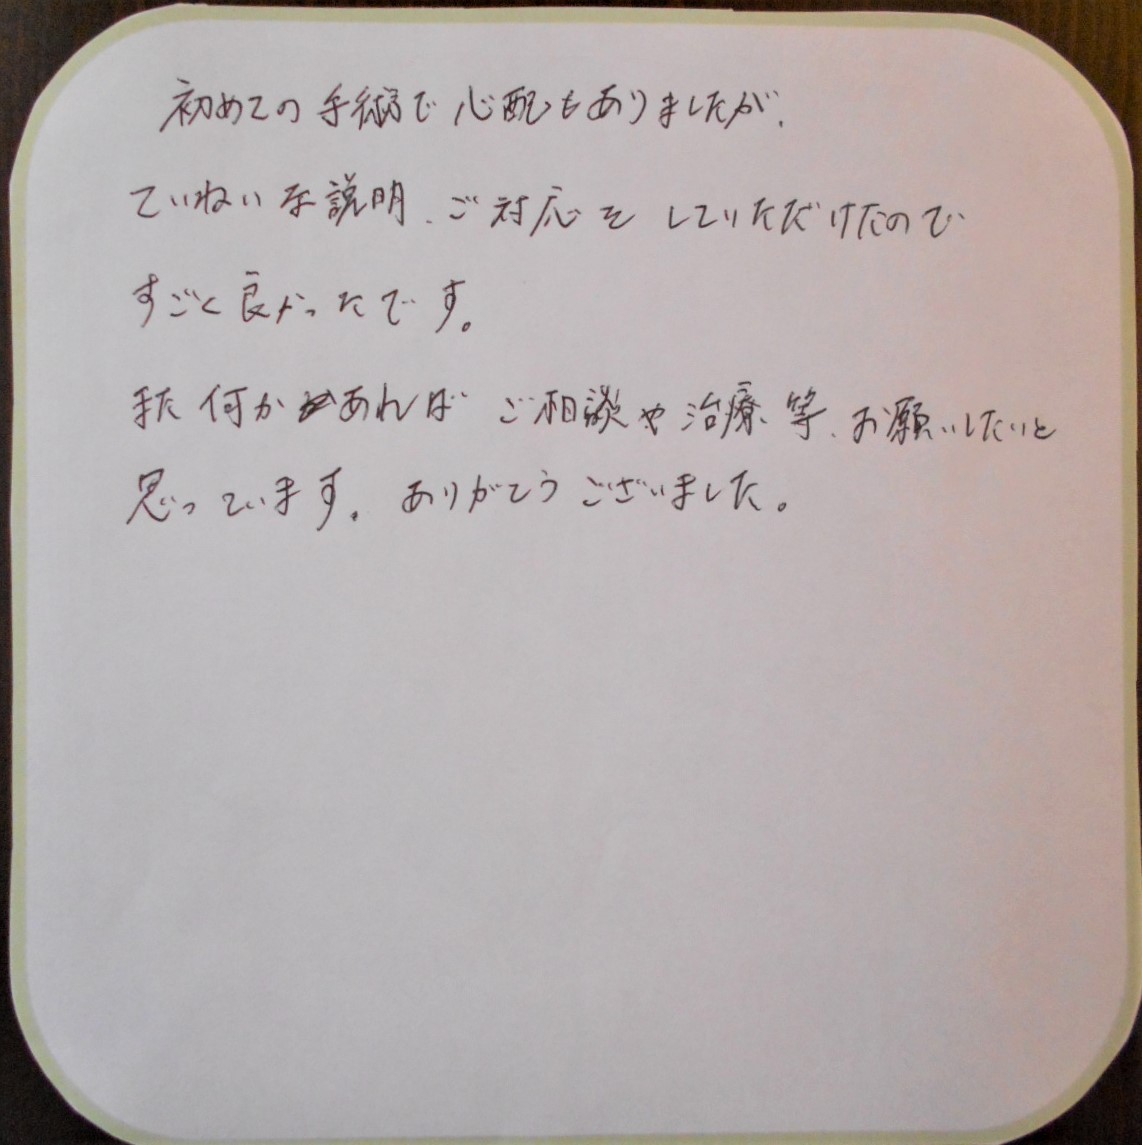 初めての手術で心配もありましたが、
ていねいな説明、ご対応をしていただけたので
すごく良かったです。
また何かあれば ご相談や治療等、お願いしたいと
思っています。ありがとうございました。